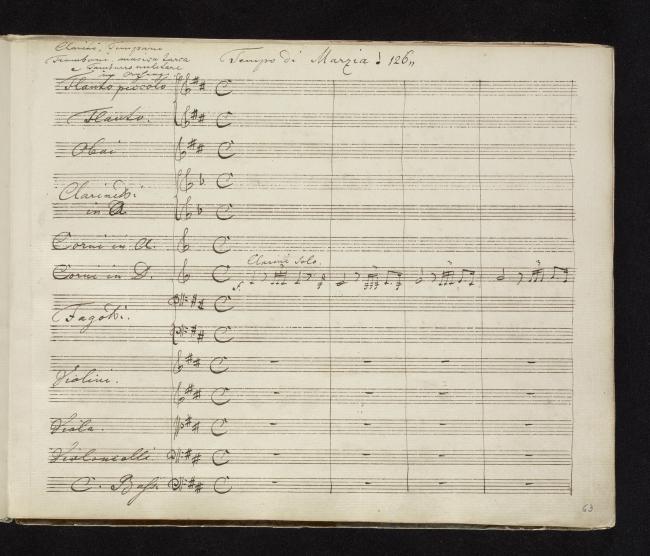 Clarini, Timpani
Tromboni, musica turca
e Tamburo militare
Tempo di Marzia 126
Flauto piccolo
Flauto.
Oboi
Clarinetti
in A
Corni in A.
Clarini Solo.
Corni in D.
3 3 3 3
f.
Fagotti.
Violini.
Viola.
Violoncelli
C. Bassi
63